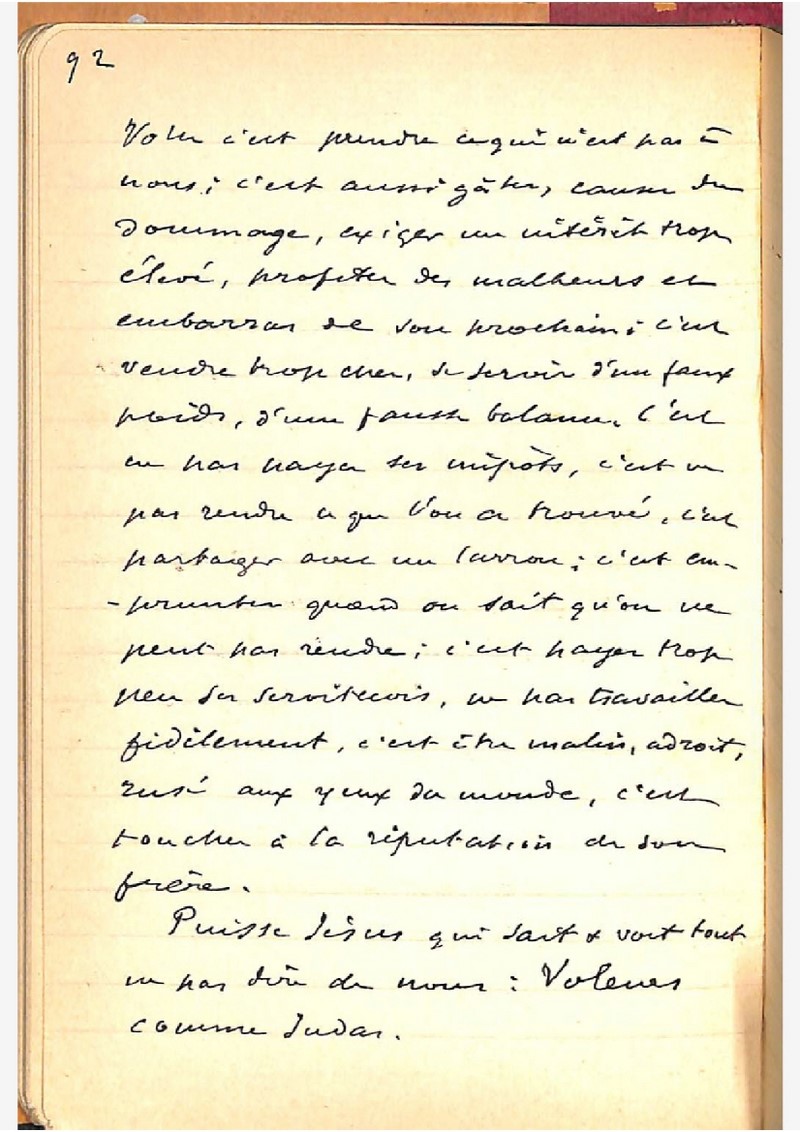 92
Voler c'est prendre ce qui n'est pas à
nous ; c'est aussi gâter, causer du
dommage, exiger un intérêt trop
élevé, profiter des malheurs et
embarras de son prochain ; c'est
vendre trop cher, se servir d'un faux
poids, d'une fausse balance. C'est
ne pas payer ses impôts, c'est ne
pas rendre ce que l'on a trouvé, c'est
partager avec un larron ; c'est em-
-prunter quand on sait qu'on ne
peut pas rendre ; c'est payer trop
peu ses serviteurs, ne pas travailler
fidèlement, c'est être malin, adroit,
rusé aux yeux du monde, c'est
toucher à la réputation de son
frère.
Puisse Jésus qui sait & voit tout
ne pas dire de nous : Voleurs
comme Judas.